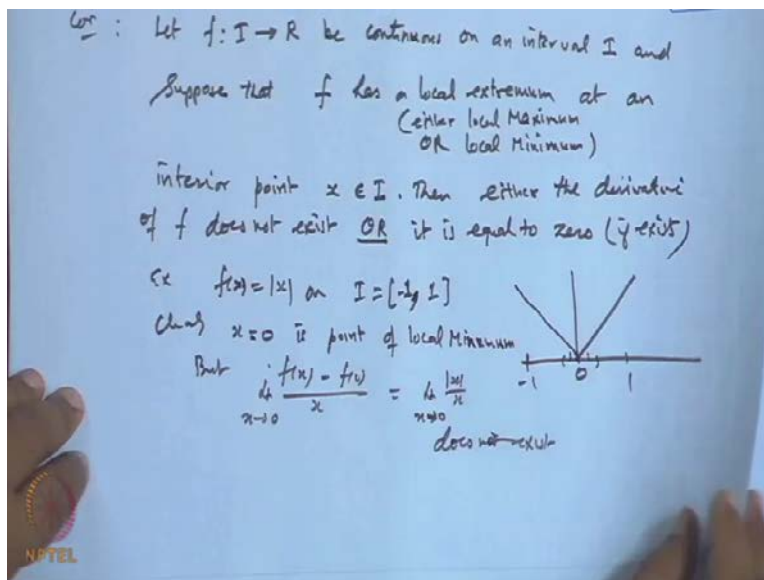 Cor : Let f: I → R be continuous on an interval I and
Suppose that f has a local extremum at an
(either local Maximum
OR local Minimum)
interior point x ∈ I. Then either the derivative
of f does not exist OR it is equal to zero (if exist)
Ex f(x) = |x| on I = [-1, 1]
x=0 is point of local Minimum
But lt x→0 f(x) - f(0) / x = lt x→0 |x| / x
does not exist
-1 0 1
NPTEL